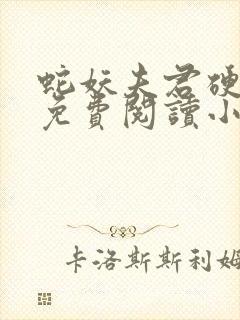 蛇妖夫君硬
免費閱讀小
卡洛斯斯利姆